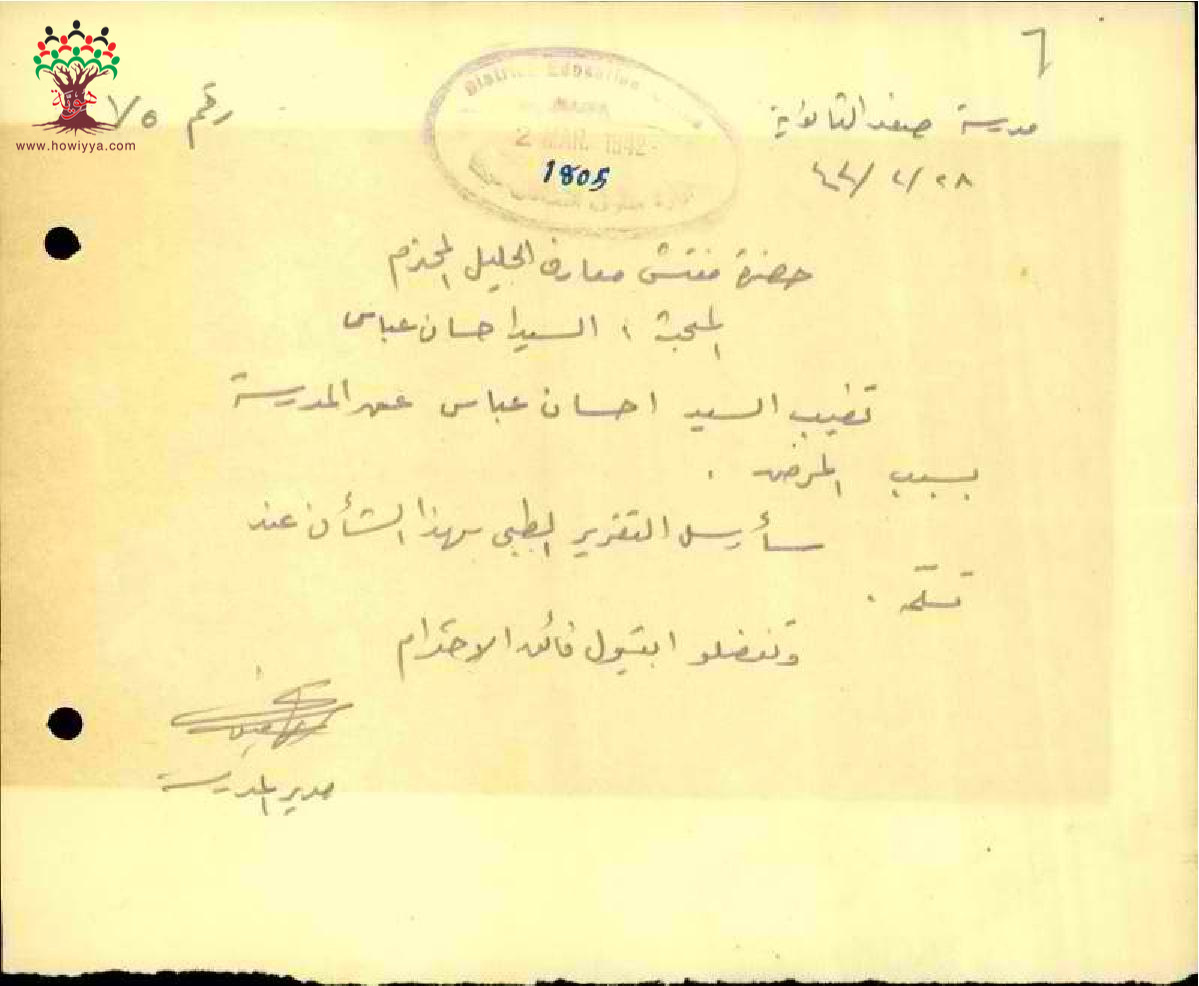 ٦
مدرسة صفد الثانوية
رقم ١/٥
٢٨/٢/٤٢
District Education
2 MAR. 1942
1805
حضرة مفتش معارف الجليل المحترم
المبحث : السيد احسان عباس
تغيب السيد احسان عباس عن المدرسة
بسبب المرض .
سأرسل التقرير الطبي بهذا الشأن عند
تسلمه .
وتفضلوا بقبول فائق الاحترام
مدير المدرسة
هوية
www.howiyya.com